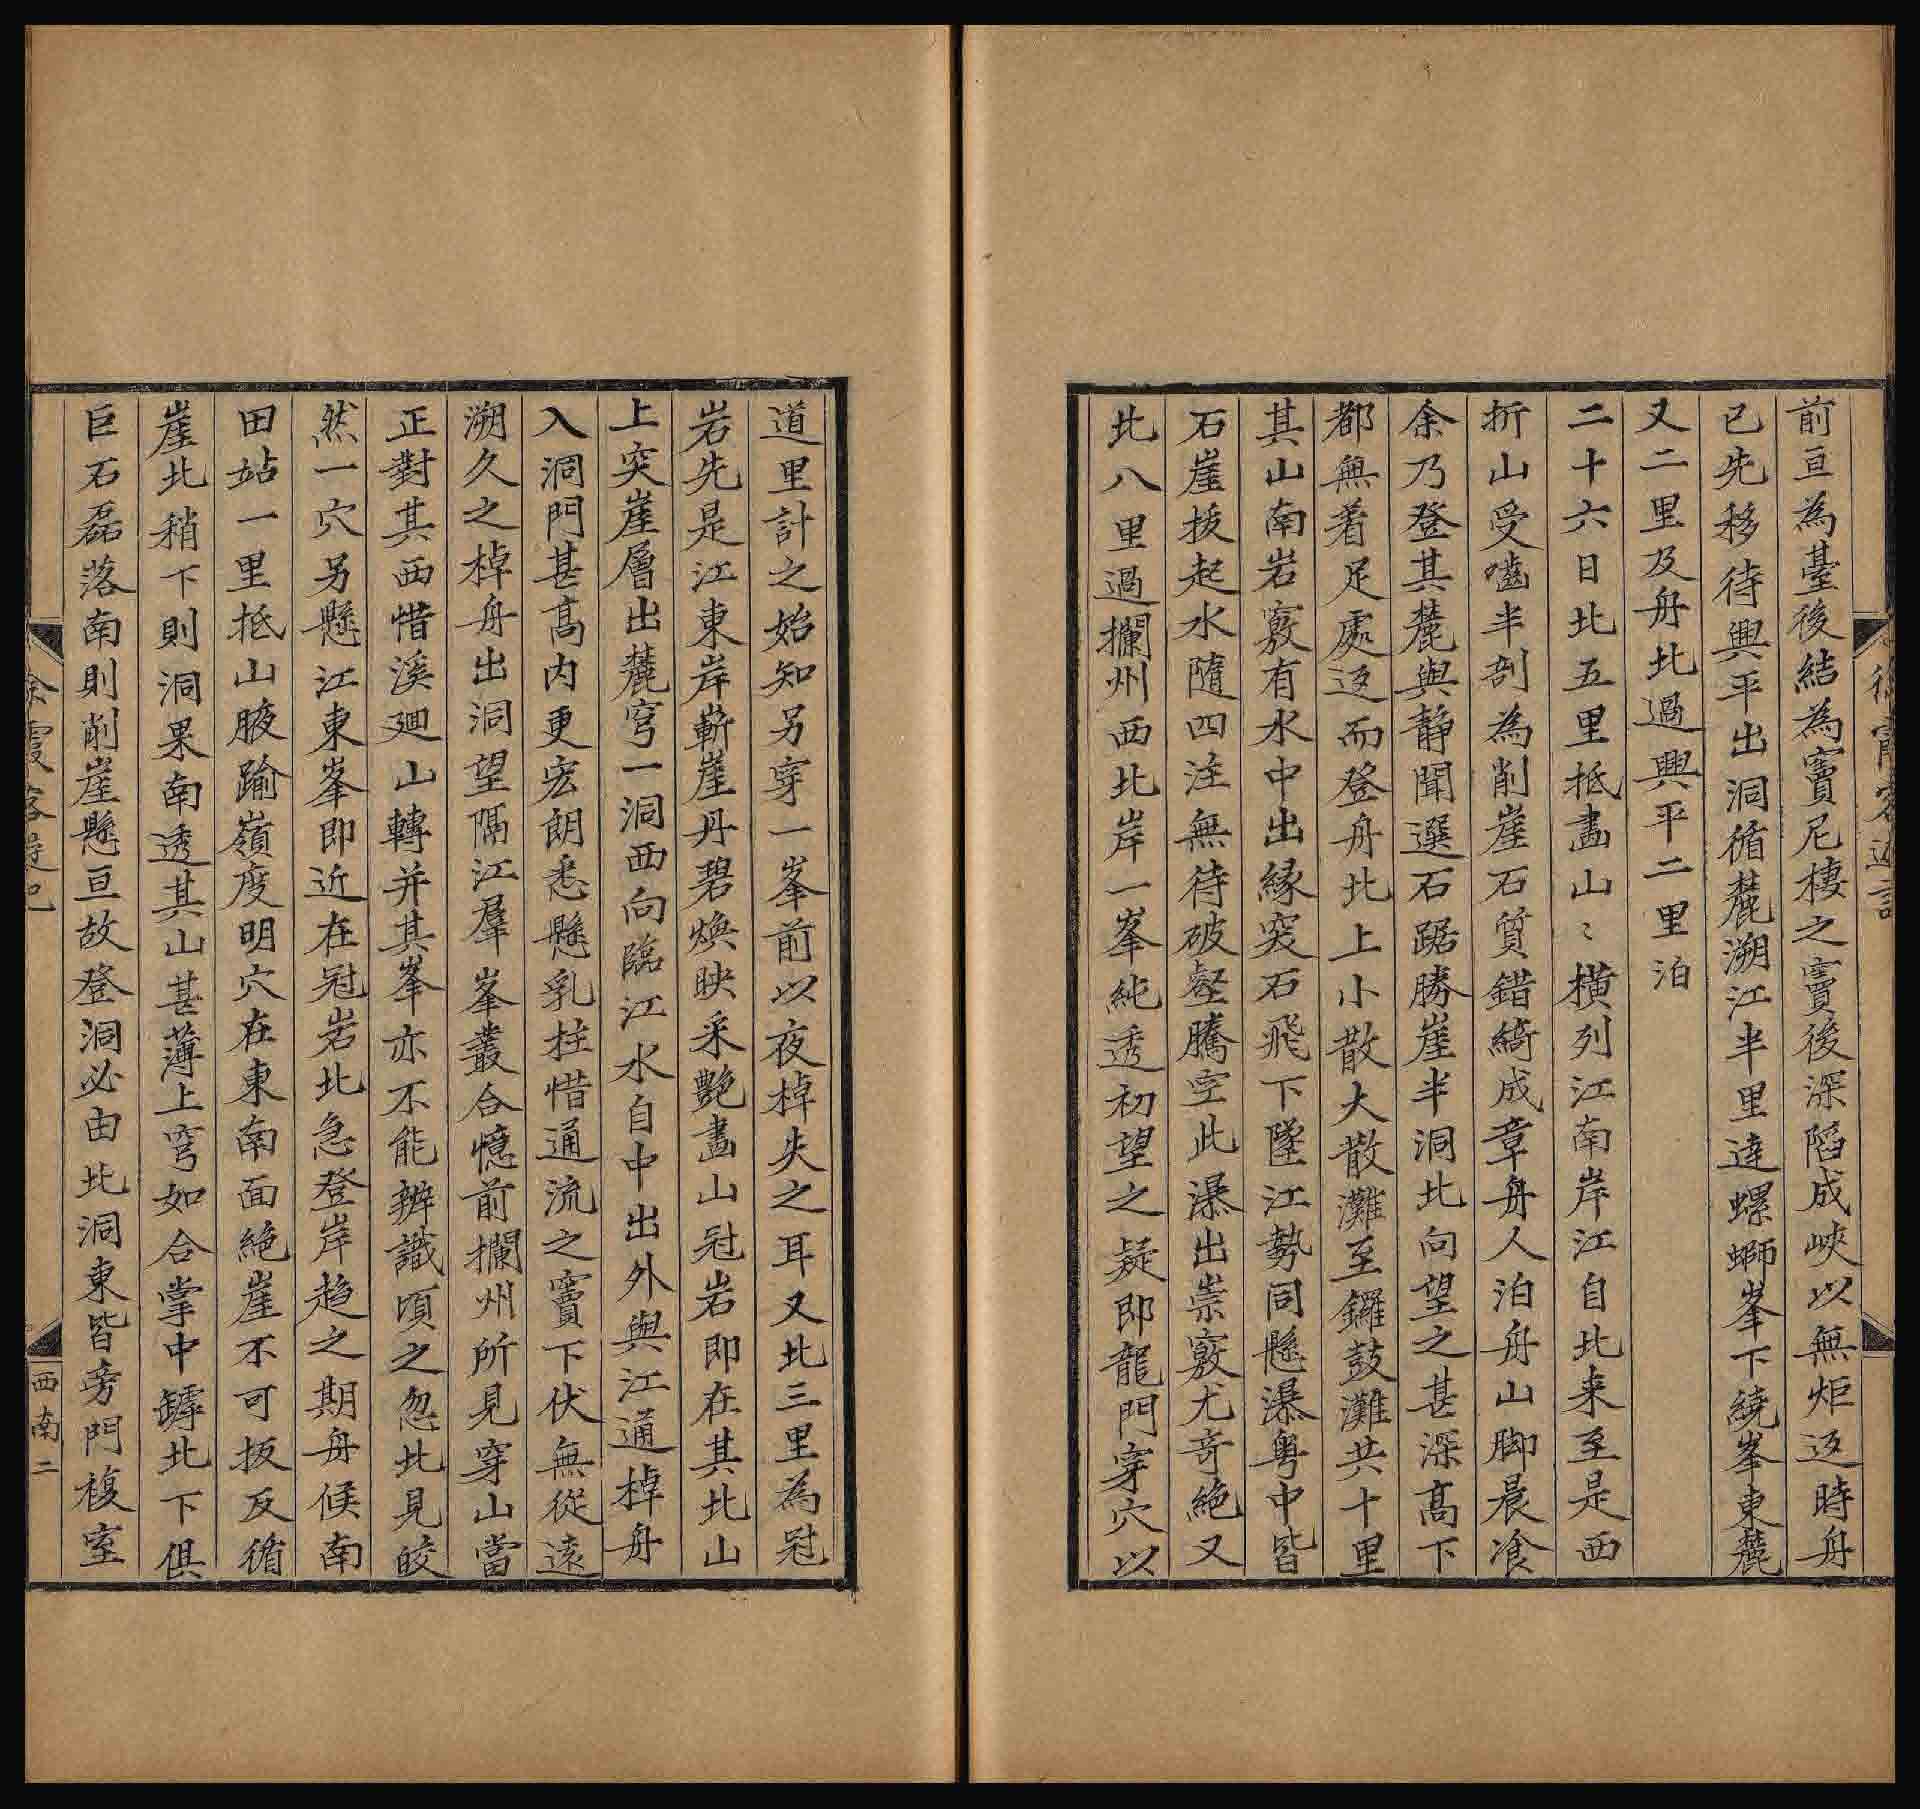 前亘為臺後結為竇尼棲之竇後深陷成峽以無炬返時舟
已先移待興平出洞循麓溯江半里達螺螄峯下繞峯東麓
又二里及舟北過興平二里泊
二十六日北五里抵畫山〻橫列江南岸江自北来至是西
折山受嚙半剖為削崖石質錯綺成章舟人泊舟山脚晨飡
余乃登其麓與静聞選石踞勝崖半洞北向望之甚深高下
都無着足處返而登舟北上小散大散灘至鑼鼓灘共十里
其山南岩竅有水中出緣突石飛下墜江勢同懸瀑粤中皆
石崖拔起水隨四注無待破壑騰空此瀑出崇竅尤奇絶又
北八里過攔州西北岸一峯純透初望之疑即龍門穿穴以
道里計之始知另穿一峯前以夜棹失之耳又北三里為冠
岩先是江東岸嶄崖丹碧焕映采艶畫山冠岩即在其北山
上突崖層出麓穹一洞西向臨江水自中出外與江通棹舟
入洞門甚高内更宏朗悉懸乳柱惜通流之竇下伏無從遠
溯久之棹舟出洞望隔江羣峯叢合憶前攔州所見穿山當
正對其西惜溪廻山轉并其峯亦不能辨識頃之忽北見皎
然一穴另懸江東峯即近在冠岩北急登岸趨之期舟候南
田站一里抵山腋踰嶺度明穴在東南面絶崖不可扳反循
崖北稍下則洞果南透其山甚薄上穹如合掌中罅北下俱
巨石磊落南則削崖懸亘故登洞必由北洞東皆旁門複室
西南二